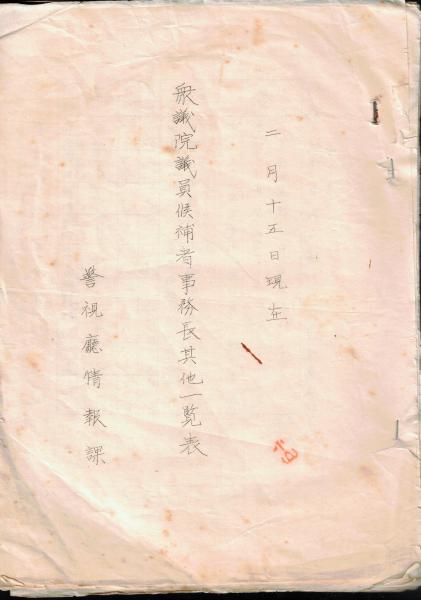 二月十五日現在
衆議院議員候補者事務長其他一覧表
警視廳情報課